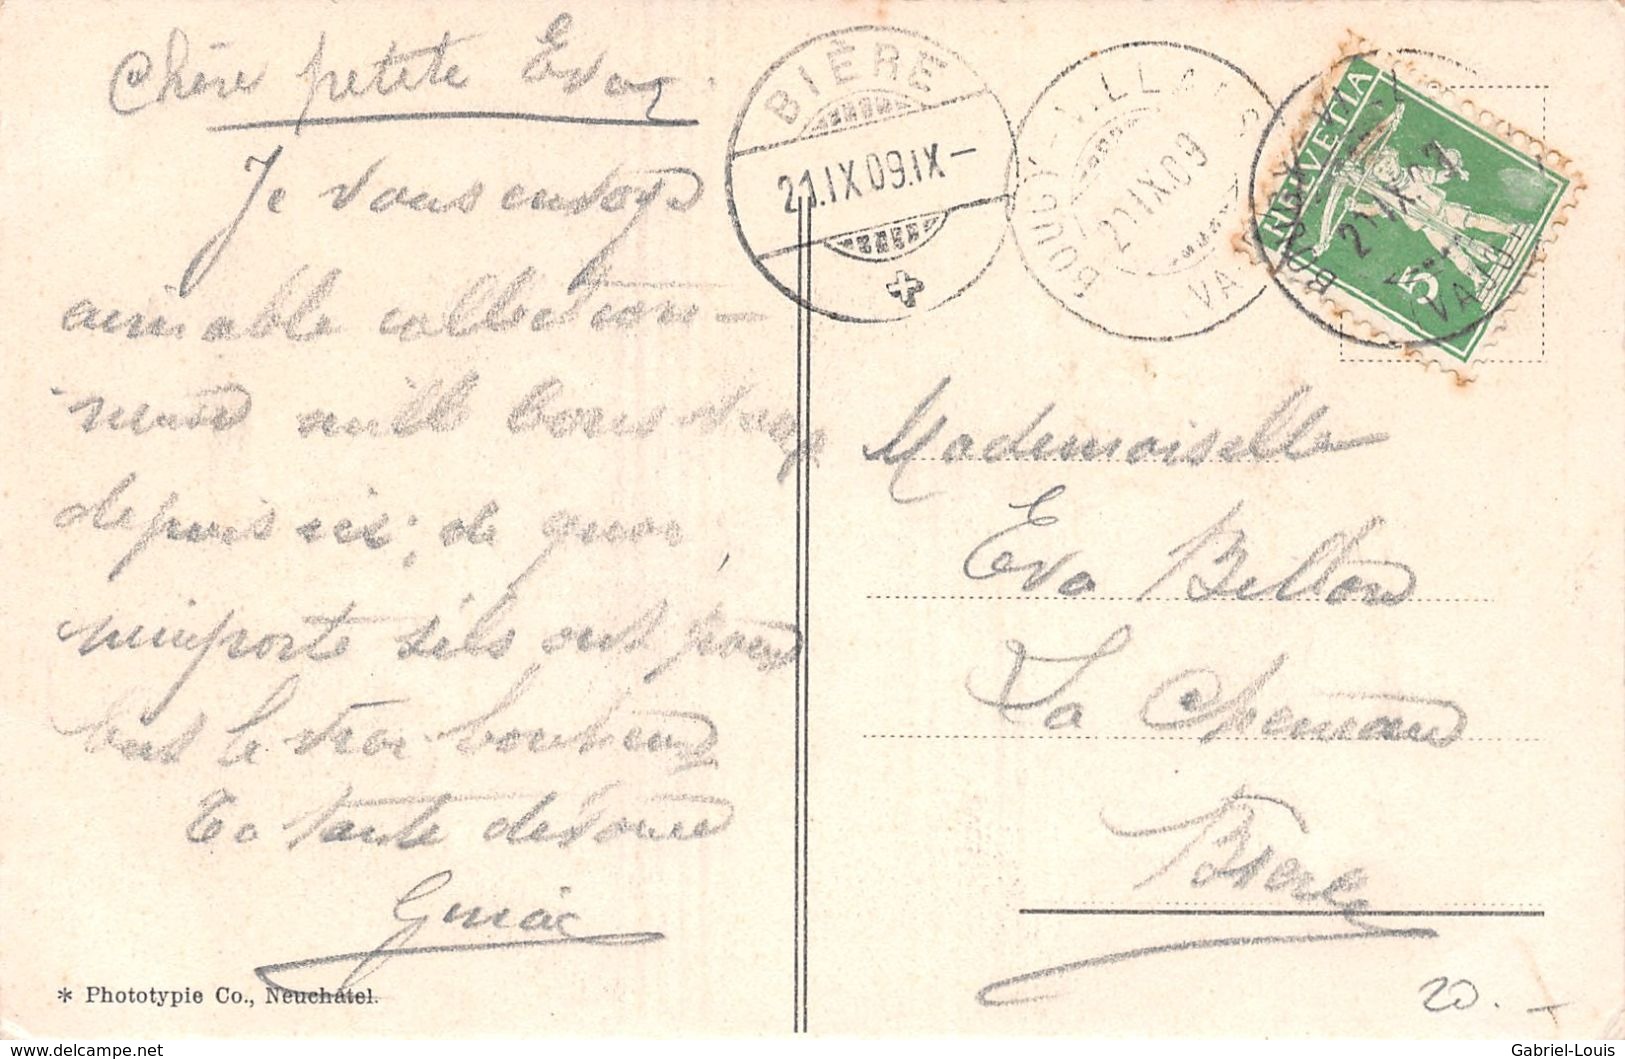 Chère petite Eva
Je vous envoye
aimable collection-
neuse mille bons vœux
depuis ici; de quoi
n'importe s'ils ont pour
but le vrai bonheur
Ta tante dévouée
BIÈRE
21.IX.09.IX-
BOUGY-VILLARS
21.IX.09
VA
HELVETIA
5
21.IX.09
(VAUD)
Mademoiselle
Eva Bellon
La
Bière
* Phototypie Co., Neuchâtel.
20.-
delcampe.net
Gabriel-Louis